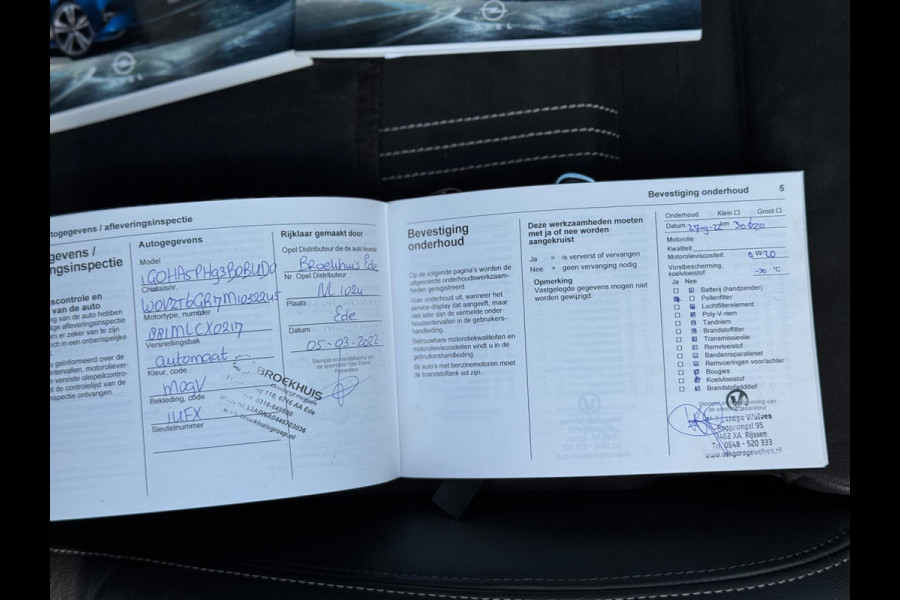 OPEL
togegevens / afleveringsinspectie
gevens /
ngsinspectie
scontrole en
van de auto
ng van de auto hebben
dige afleveringsinspectie
m er zeker van te zijn
sch in een onberispelijke
u geïnformeerd over de
intervallen, motoroliever-
n vereiste oliepeilcontrole-
t de controlelijst van de
nspectie ontvangen.
Autogegevens
Model
Chassisnr.
Motortype, nummer
881MLCX0217
Versnellingsbak
automaat
Kleur, code
MOGV
Bekleding, code
IUFX
Sleutelnummer
Rijklaar gemaakt door
Opel Distributeur die de auto levert
Broekhuis Ede
Nr. Opel Distributeur
NL 1024
Plaats
Ede
Datum
05-03-2022
BROEKHUIS
Bevestiging onderhoud
5
Bevestiging
onderhoud
Op de volgende pagina's worden de
uitgevoerde onderhoudswerkzaam-
heden geregistreerd.
Voer onderhoud uit, wanneer het
service-display dat aangeeft, maar
niet later dan de vermelde onder-
houdsintervallen in de gebruikers-
handleiding.
Betrouwbare motoroliekwaliteiten en
motorolieviscositeiten vindt u in de
gebruikershandleiding.
Bij auto's met benzinemotoren moet
de brandstoftank vol zijn.
Deze werkzaamheden moeten
met ja of nee worden
aangekruist
Ja = is ververst of vervangen
Nee = geen vervanging nodig
Opmerking
Vastgelegde gegevens mogen niet
worden gewijzigd.
Onderhoud: Klein Groot
Datum km
Motorolie
Kwaliteit:
Motorolieviscositeit: 0W20
Vorstbescherming,
koelvloeistof °C
Ja Nee
Batterij (handzender)
Pollenfilter
Luchtfilterelement
Poly-V-riem
Tandriem
Brandstoffilter
Transmissieolie
Remvloeistof
Bandenreparatieset
Remvoeringen voor/achter
Bougies
Koelvloeistof
Brandstofadditief
Garage Wolves
7462 XA Rijssen
Tel. 0548 - 520 333